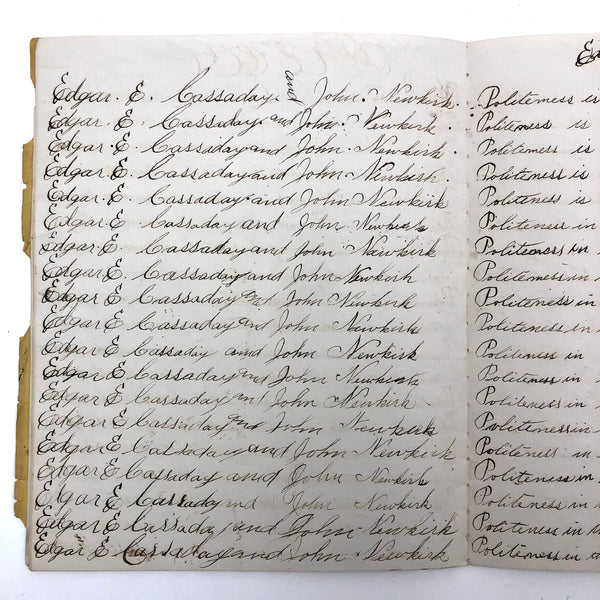 Edgar. E. Cassaday. and John. Newkirk.
Edgar. E. Cassaday. and John. Newkirk.
Edgar. E. Cassaday and John. Newkirk.
Edgar. E. Cassaday and John. Newkirk.
Edgar. E. Cassaday. and John Newkirk
Edgar E. Cassaday and John Newkirk
Edgar. E. Cassaday and John Newkirk
Edgar E Cassaday and John Newkirk
Edgar E Cassaday and John Newkirk
Edgar E Cassaday and John Newkirk
Edgar E Cassaday and John Newkirk
Edgar E Cassaday and John Newkirk
Edgar E Cassaday and John Newkirk
Edgar E Cassaday and John Newkirk
Edgar E Cassaday and John Newkirk
Edgar E Cassaday and John Newkirk
Edgar E Cassaday and John Newkirk
Edgar E Cassaday and John Newkirk
Edgar E Cassaday and John Newkirk
Politeness is
Politeness is
Politeness is
Politeness is
Politeness is
Politeness in
Politeness in
Politeness in
Politeness in
Politeness in
Politeness in
Politeness in
Politeness in
Politeness in
Politeness in
Politeness in
Politeness in
Politeness in
Politeness in